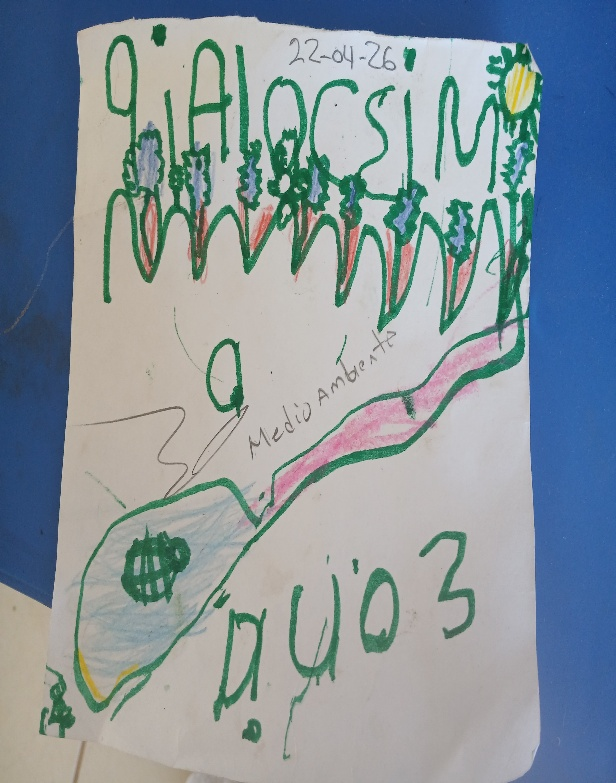 22-04-26
qiAlocsim
a
Medio Ambiente
DUO3